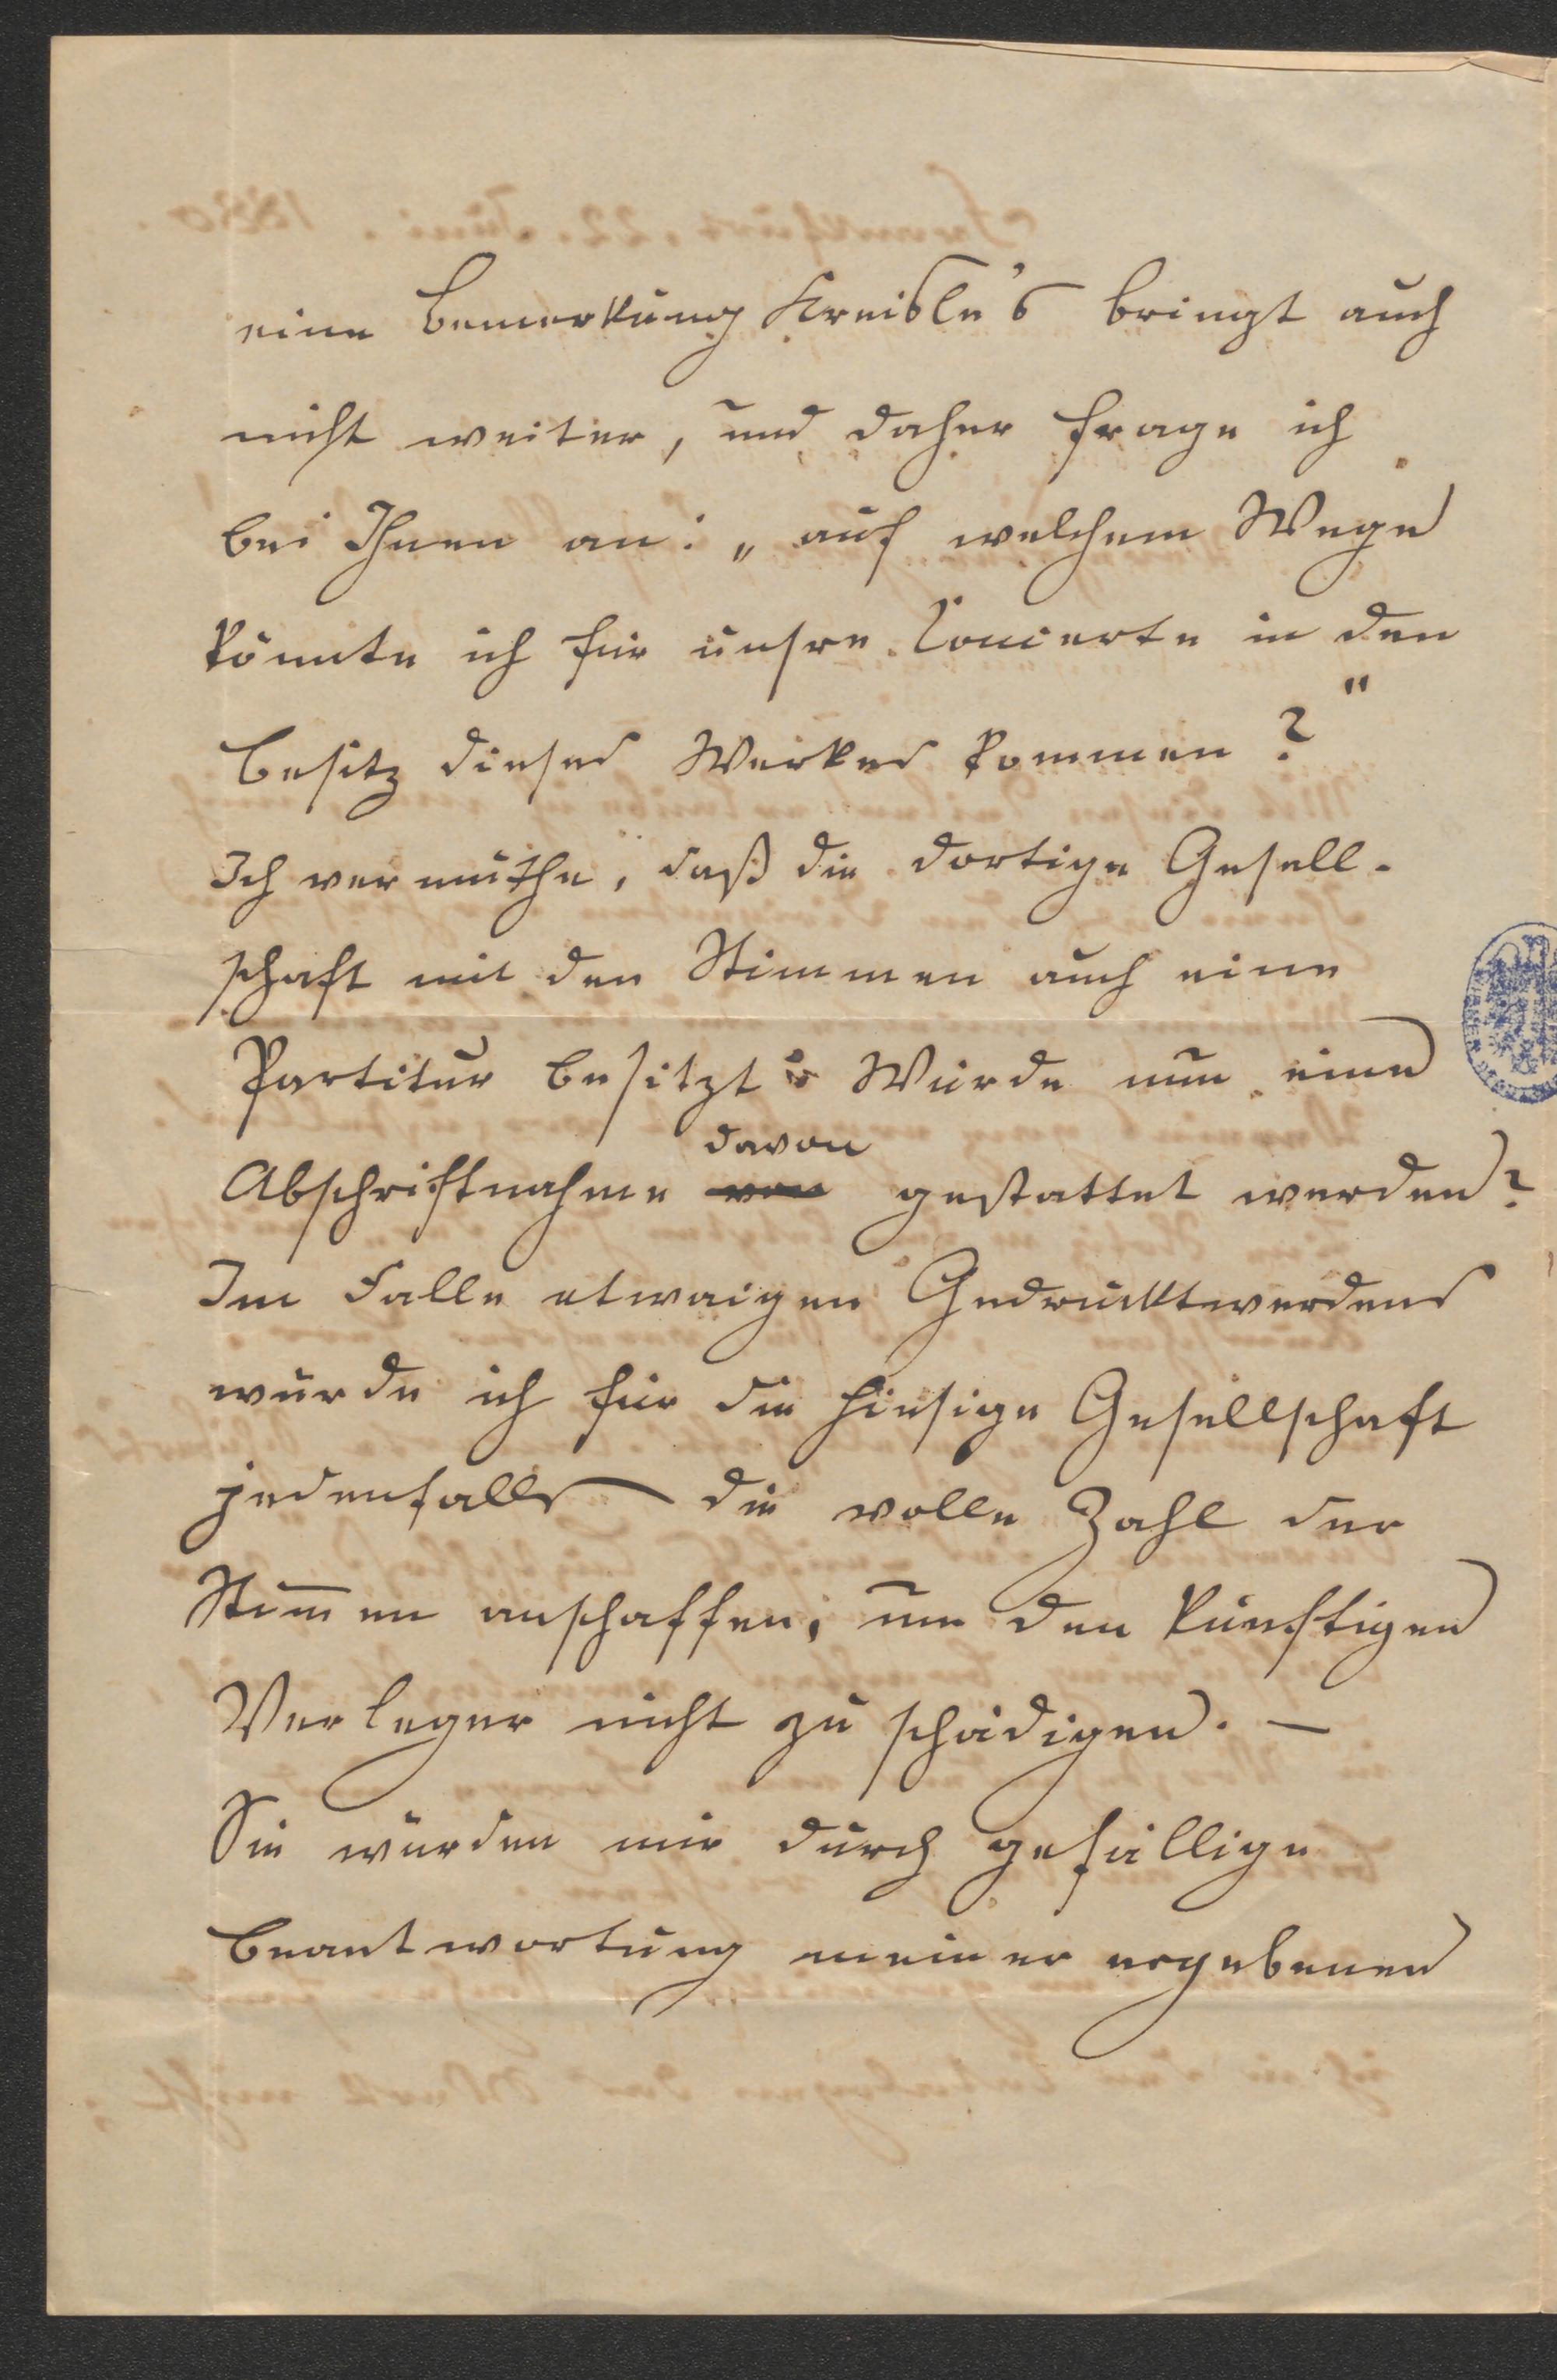 eine Bemerkung Kreisle's bringt auch
nicht weiter, und daher frage ich
bei Ihnen an: „auf welchem Wege
könnte ich für unsre Concerte in den
Besitz dieses Werkes kommen?"
Ich vermuthe, daß die dortige Gesell-
schaft mit den Stimmen auch eine
Partitur besitzt. Würde nun eine
davon
Abschriftnahme von gestattet werden?
Im Falle etwaigen Gedrucktwerdens
würde ich für die hiesige Gesellschaft
jedenfalls die volle Zahl der
Stim̅en anschaffen, um den künftigen
Verleger nicht zu schädigen. —
Sie würden mir durch gefällige
Beantwortung meiner ergebenen